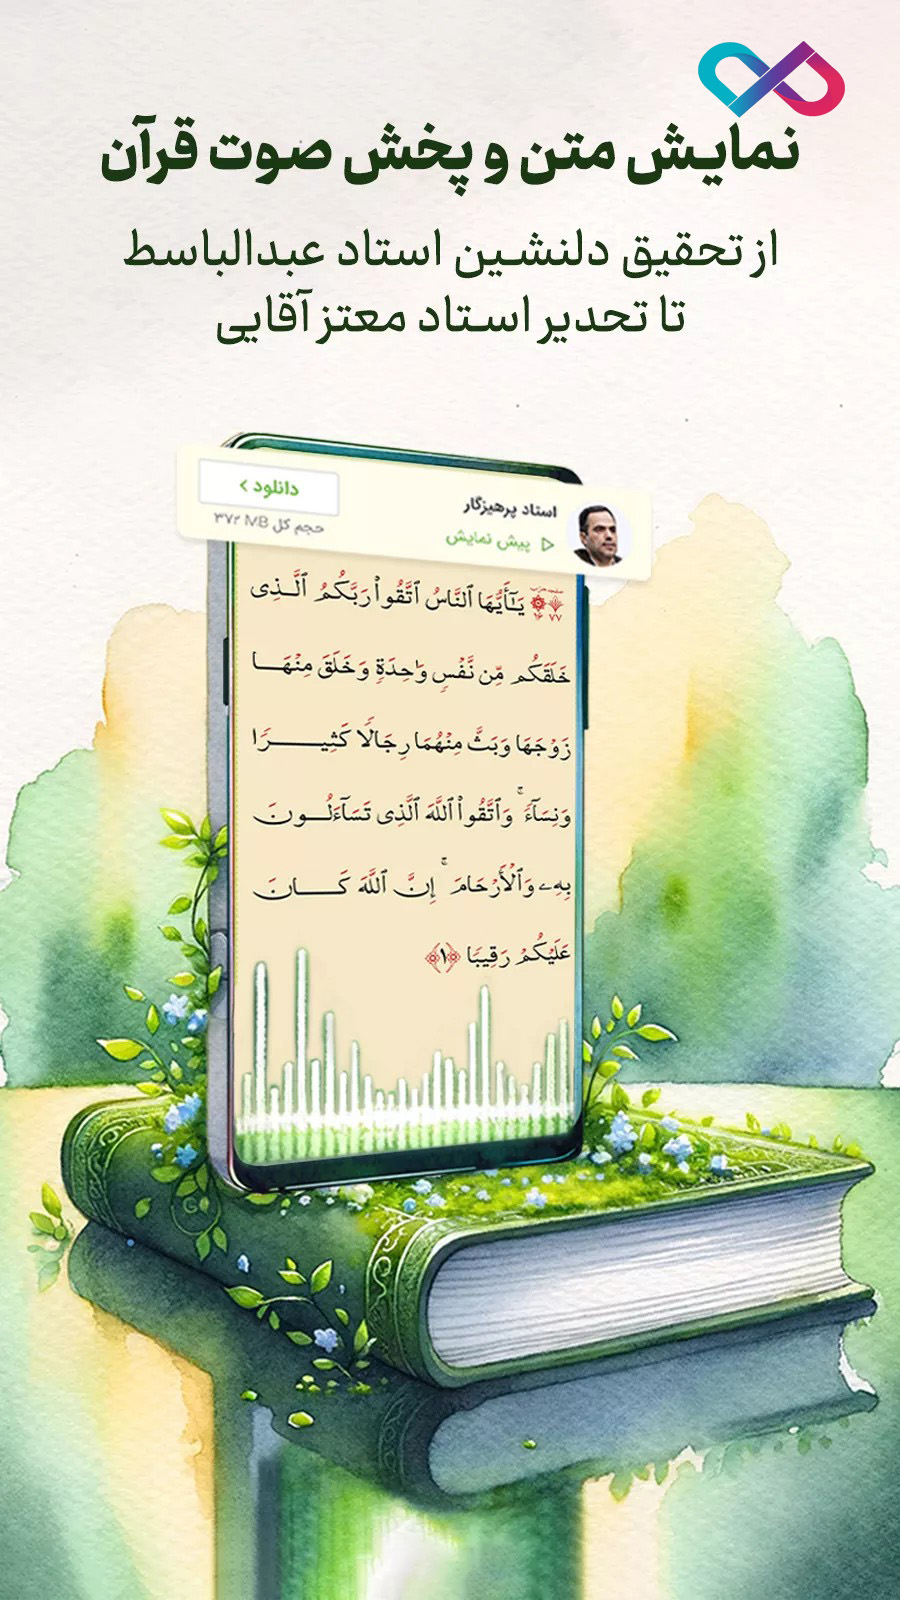 نمایش متن و پخش صوت قرآن
از تحقیق دلنشین استاد عبدالباسط
تا تحدیر استاد معتز آقایی
استاد پرهیزگار
دانلود >
پیش نمایش
حجم کل ۳۷۲ MB
يَـٰٓأَيُّهَا ٱلنَّاسُ ٱتَّقُوا۟ رَبَّكُمُ ٱلَّـذِى
خَلَقَكُم مِّن نَّفْسٍ وَٰحِدَةٍ وَخَلَقَ مِنْهَـــا
زَوْجَهَا وَبَثَّ مِنْهُمَا رِجَالًا كَثِيـــــرًا
وَنِسَآءً ۚ وَٱتَّقُوا۟ ٱللَّهَ ٱلَّذِى تَسَآءَلُـــونَ
بِهِۦ وَٱلْأَرْحَامَ ۚ إِنَّ ٱللَّهَ كَـــــانَ
عَلَيْكُمْ رَقِيبًا ﴿١﴾